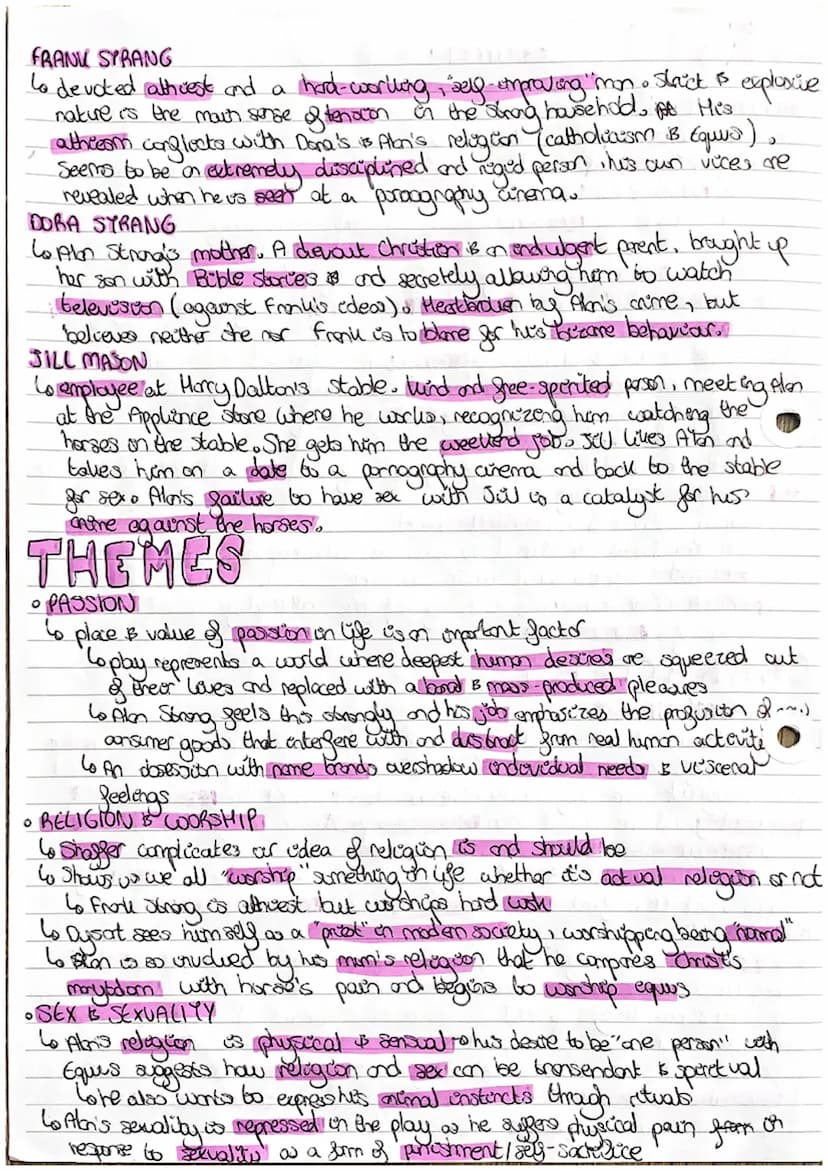 FRANK STRANG
↳ devoted atheist and a hard-working, "self-improving" man. Strict & explosive
nature is the main sense of tension in the Strang household. His
atheism conflicts with Dora's & Alan's religion (catholicism & Equus).
Seems to be an extremely disciplined and rigid person, his own vices are
revealed when he is seen at a pornography cinema.
DORA STRANG
↳ Alan Strang's mother. A devout Christian & an indulgent parent, brought up
her son with Bible stories and secretely allowing him to watch
television (against Frank's ideas). Heartbroken by Alan's crime, but
believes neither she nor Frank is to blame for his bizarre behaviour.
JILL MASON
↳ employee at Harry Dalton's stable. Kind and free-spirited person, meeting Alan
at the Appliance store where he works, recognizing him watching the
horses in the stable. She gets him the weekend job. Jill likes Alan and
takes him on a date to a pornography cinema and back to the stable
for sex. Alan's failure to have sex with Jill is a catalyst for his
crime against the horses.
THEMES
• PASSION
↳ place & value of passion in life is an important factor
↳ play represents a world where deepest human desires are squeezed out
of their lives and replaced with a banal & mass-produced pleasures
↳ Alan Strang feels this strongly and his job emphasizes the profusion of
consumer goods that interfere with and distract from real human activiti
↳ An obsession with name brands overshadow individual needs & visceral
feelings
• RELIGION & WORSHIP
↳ Shaffer complicates our idea of religion is and should be
↳ Shows us we all "worship" something in life whether it's actual religion or not
↳ Frank Strang is atheist but worships hard work
↳ Dysart sees himself as a "priest" in modern society, worshipping being "normal"
↳ Alan is so by his mum's religion that he compares Christ's
martydom with horse's pain and begins to worship equus
• SEX & SEXUALITY
↳ Alan's religion is physical & sensual → his desire to be "one person" with
Equus suggests how religion and sex can be transendant & spiritual
↳ he also works to express his animal instincts through rituals
↳ Alan's sexuality is repressed in the play as he suffers physical pain in
response to sexuality as a form of punishment/self-sacrifice